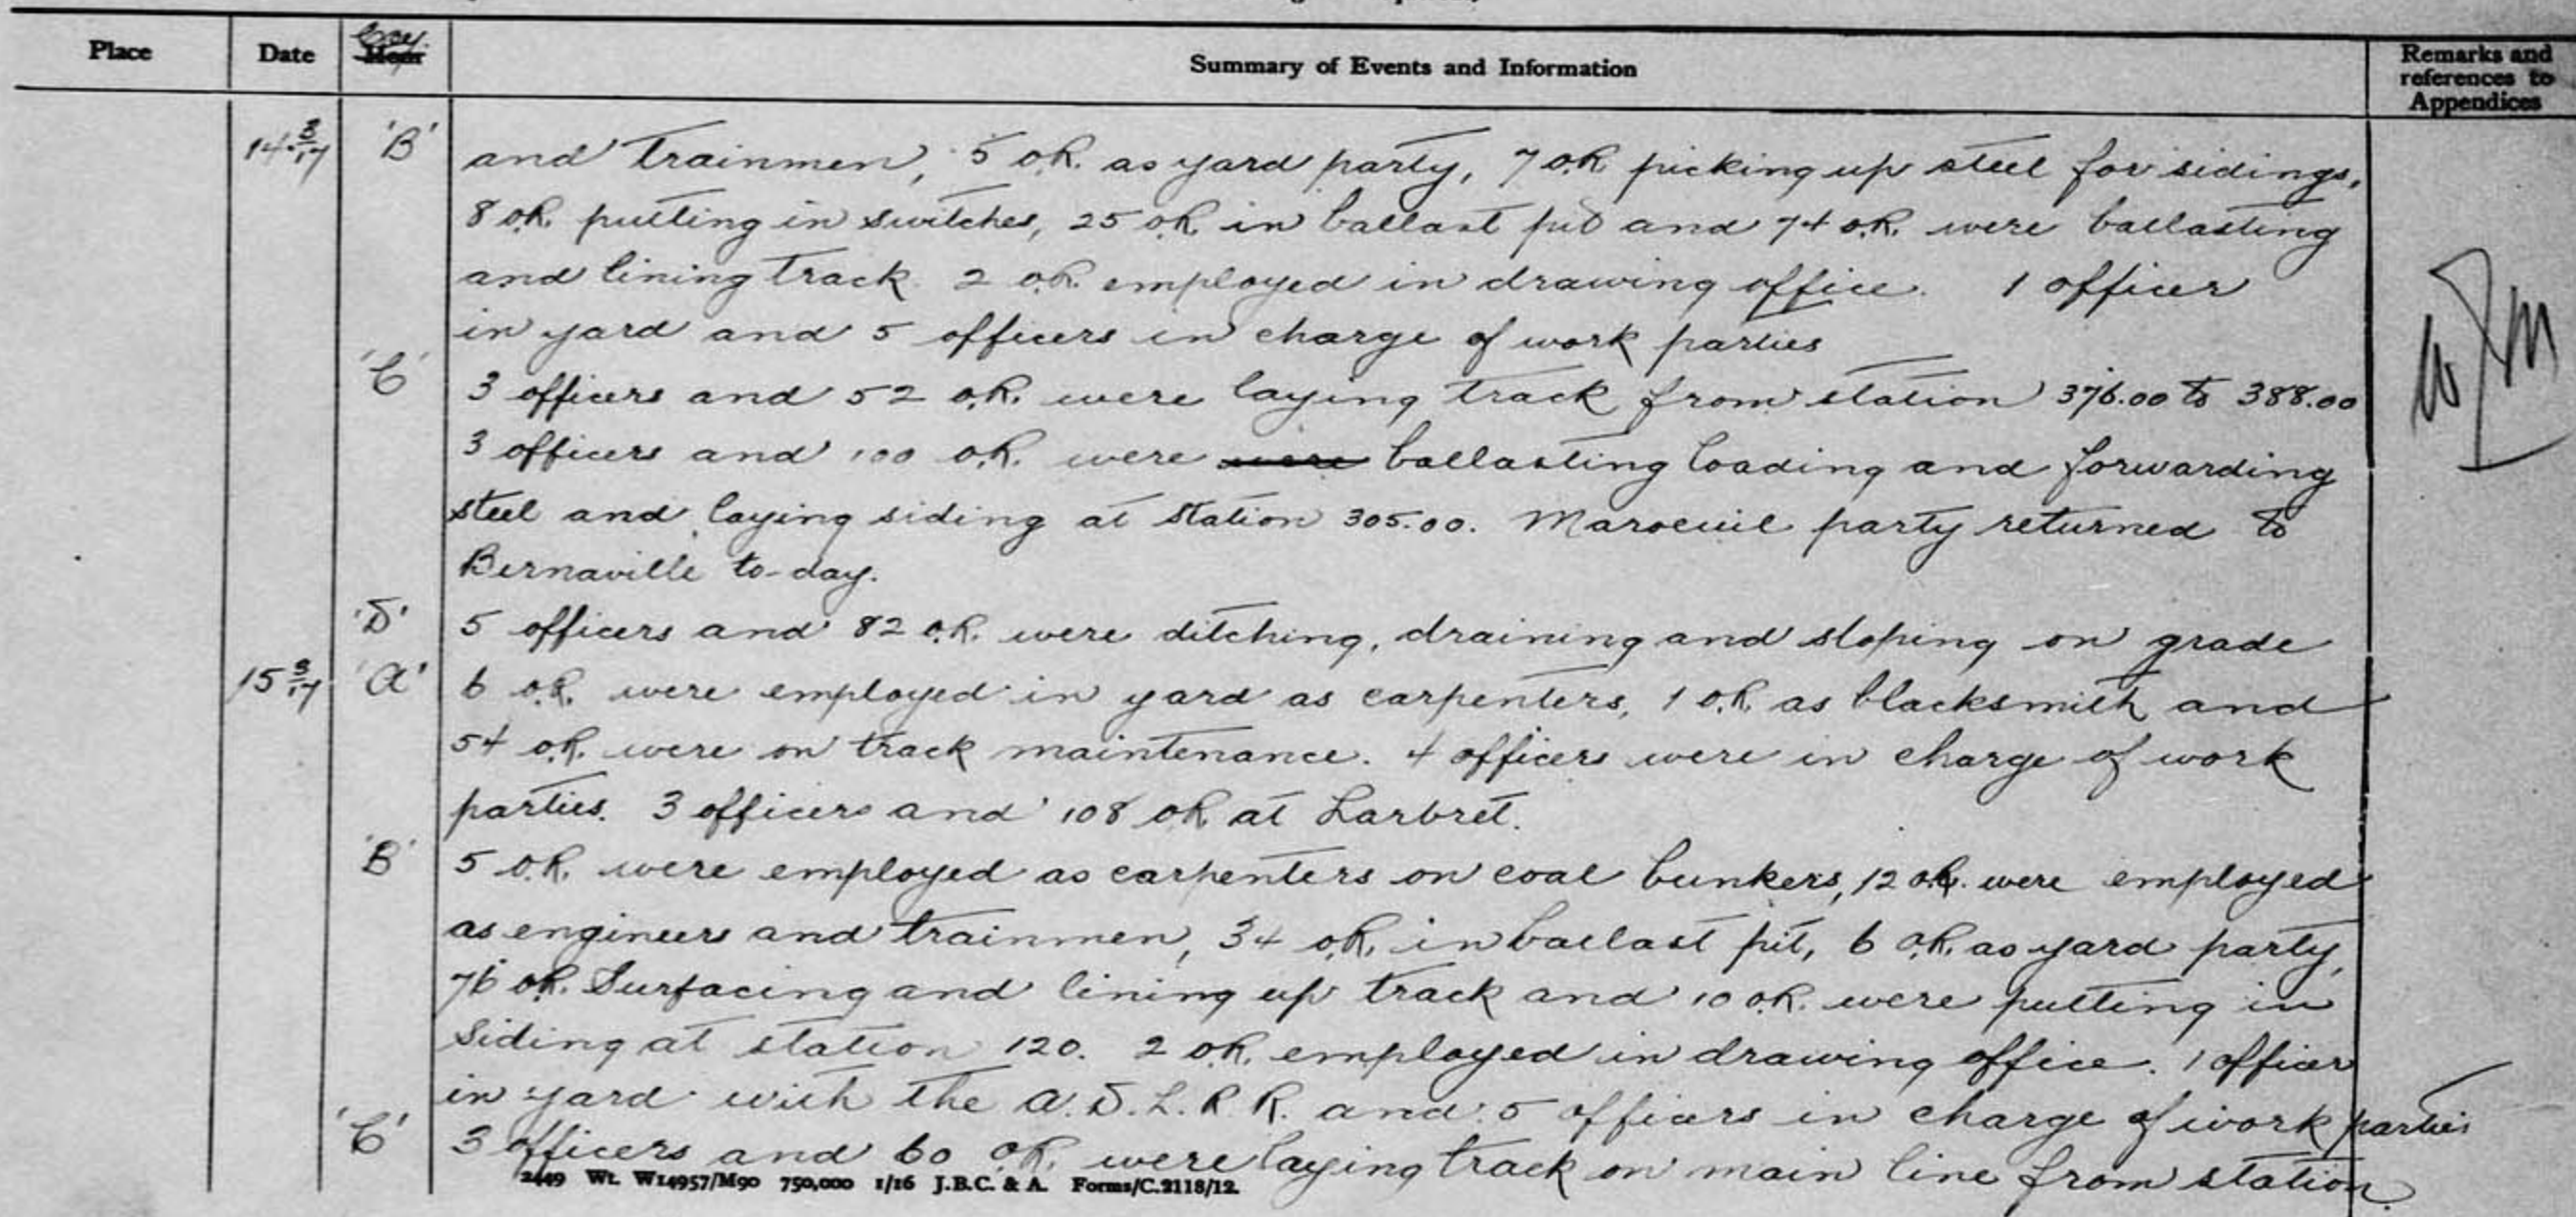 Place Date Coy. Hour Summary of Events and Information Remarks and references to Appendices
14 3/17 'B' and trainmen, 5 O.R. as yard party, 7 O.R. picking up steel for sidings,
8 O.R. putting in switches, 25 O.R. in ballast pit and 74 O.R. were ballasting
and lining track. 2 O.R. employed in drawing office. 1 officer
in yard and 5 officers in charge of work parties
'C' 3 officers and 52 O.R. were laying track from station 376.00 to 388.00
3 officers and 100 O.R. were were ballasting loading and forwarding
steel and laying siding at station 305.00. Maroeuil party returned to
Bernaville to-day.
'D' 5 officers and 82 O.R. were ditching, draining and sloping on grade
15 3/17 'A' 6 O.R. were employed in yard as carpenters, 1 O.R. as blacksmith and
54 O.R. were on track maintenance. 4 officers were in charge of work
parties. 3 officers and 108 OR at Larbret.
'B' 5 O.R. were employed as carpenters on coal bunkers, 12 O.R. were employed
as engineers and trainmen, 34 O.R. in ballast pit, 6 O.R. as yard party,
76 O.R. Surfacing and lining up track and 10 O.R. were putting in
siding at station 120. 2 O.R. employed in drawing office. 1 officer
in yard with the A.D.L.R.R. and 5 officers in charge of work parties
'C' 3 officers and 60 O.R. were laying track on main line from station
2449 Wt. W14957/M90 750,000 1/16 J.B.C. & A. Forms/C.2118/12.